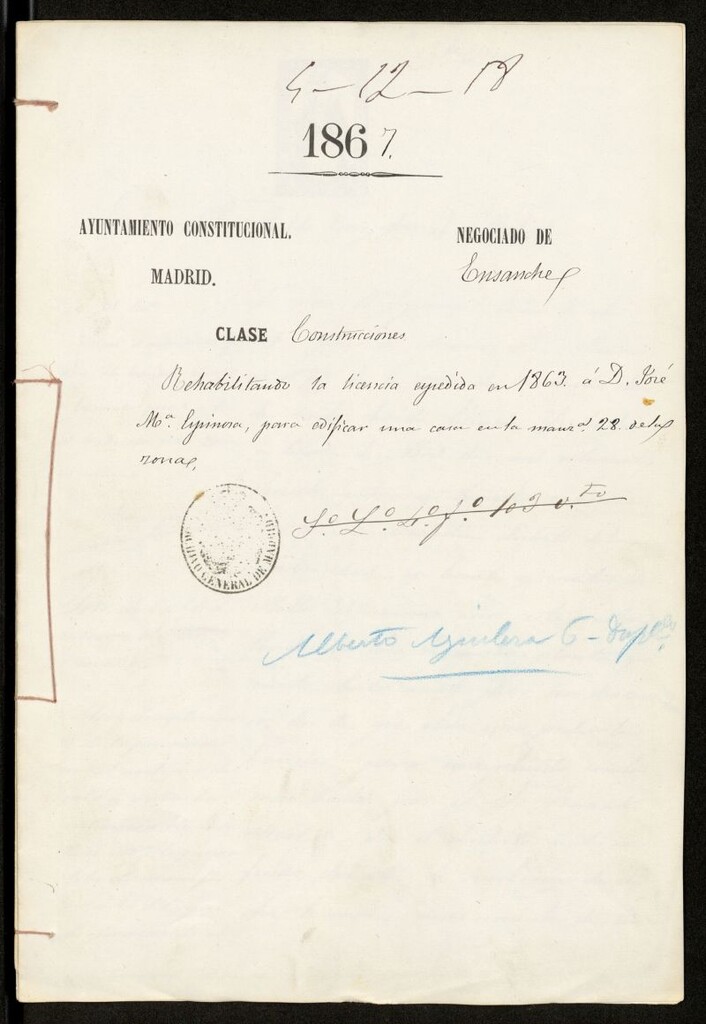 4-12-18
1867.
AYUNTAMIENTO CONSTITUCIONAL.
NEGOCIADO DE
MADRID.
Ensanche
CLASE Construcciones
Rehabilitando la licencia expedida en 1863. á D. José
Mª. Espinosa, para edificar una casa en la manzª. 28. de las
zonas,
ARCHIVO GENERAL DE MADRID
Alberto Aguilera 6 - Dupdo.